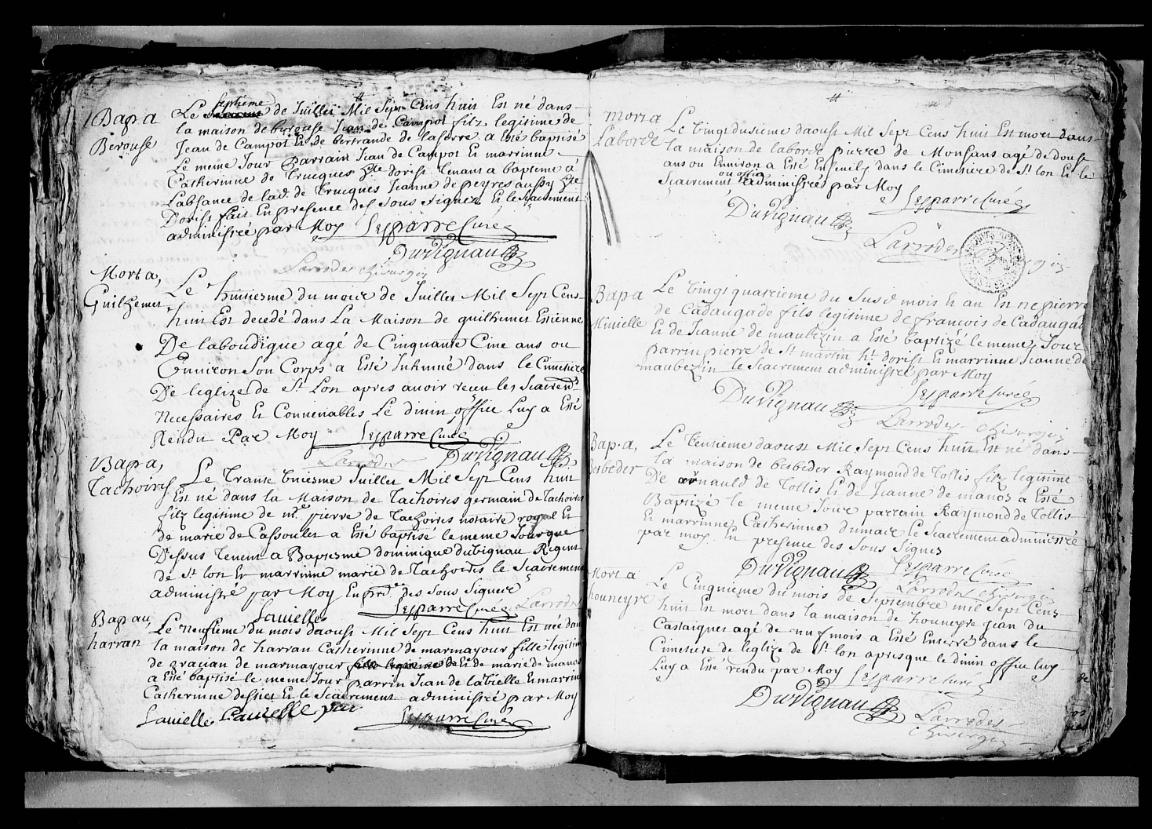 Bap a
Berouse
Le septiéme de Juillet Mil Sept Cens huit Est né dans
la maison de berouse Jean de Campot filz legitime de
Jean de Campot Et de bertrande de laserre a Esté baptisé
Le meme Jour parrain Jean de Campot Et marrinne
Catherinne de Trucques hte dorist tenant a bapteme a
Labsance de lad. de Trucques Jeanne de peyres aussy hte
Dorist fait En presence des Sous signez Et le Sacrement
administré par Moy Lesparre Curé
Duvignau
Larrodes chirurgin
Mort a,
Guilhemet
Le huitiesme du moix de Juillet Mil Sept Cens
huit Est decedé dans La Maison de guilhemet Estienne
De laboudigue agé de Cinquante Cinc ans ou
Environ Son Corps a Esté Inhumé dans le Cimetiere
De leglize de St Lon apres avoir receu les Sacremts
necessaires Et Convenables Le divin office Luy a Esté
Rendu Par Moy Lesparre Curé
Larrodes Duvignau
Bap a,
Tachoires
Le Trante Uniesme Juillet Mil Sept Cens huit
Est né dans la Maison de Tachoires germain de tachoires
filz legitime de me pierre de Tachoires notaire royal Et
de marie de Cassoulet a Esté baptisé le meme Jour que
Dessus tenent a Baptesme dominique dubignau Regent
de St lon Et marrinne marie de Tachoires le Sacrement
administré par Moy En pnce des sous Signez
Lavielle Lesparre Curé Larrodes
Bap au
harran
Le neufiesme du mois daoust Mil Sept Cens huit Est née dans
la maison de harran Catherinne de marmayour fille legitime
de gracian de marmayour Et de marie de manos
a Esté baptisé le meme Jour parrin Jean de labielle Et marrine
Catherinne desties Et le Sacrement administré par Moy
Lavielle Lavielle Lesparre Curé
Mort a
Laborde
Le vingt dusieme daoust Mil Sept Cens huit Est mort dans
la maison de laborde pierre de Monsans agé de douse
ans ou Environ a Esté Enseuely dans le Cimetiere de St lon Et le
ou office
Sacrement administré par Moy
Duvignau Lesparre Curé
Larrodes
Bap a
Minielle
Le vingt quatrieme du Susd mois Et an Est né pierre
de Cadaugade fils legitime de francois de Cadaugade
Et de Jeanne de maubezin a Esté baptizé le meme Jour
parrin pierre de St martin ht dorist Et marrinne Jeanne de
maubezin le Sacrement administré par Moy
Duvignau Lesparre Curé
Larrodes chirurgin
Bap a,
besbeder
Le Trentieme daoust Mil Sept Cens huit Est né dans
la maison de besbeder Raymond de Tollis filz legitime
De arnauld de Tollis Et de Jeanne de manos a Esté
Baptizé le meme Jour parrain Raymond de Tollis
Et marrinne Catherinne dumarc le Sacrement administré
par moy En presence des Sous Signez
Duvignau Lesparre Curé
Larrodes chirurgin
Mort a
houneyre
Le Cinquieme du mois de Septembre mil Sept Cens
huit Est mort dans la maison de houneyre Jean du
Castaignet agé de nuf mois a Esté Enterré dans le
Cimetiere de leglize de St lon apres que le divin office luy
Luy a Esté rendu par Moy Lesparre Curé
Duvignau
Larrodes
chirurgin